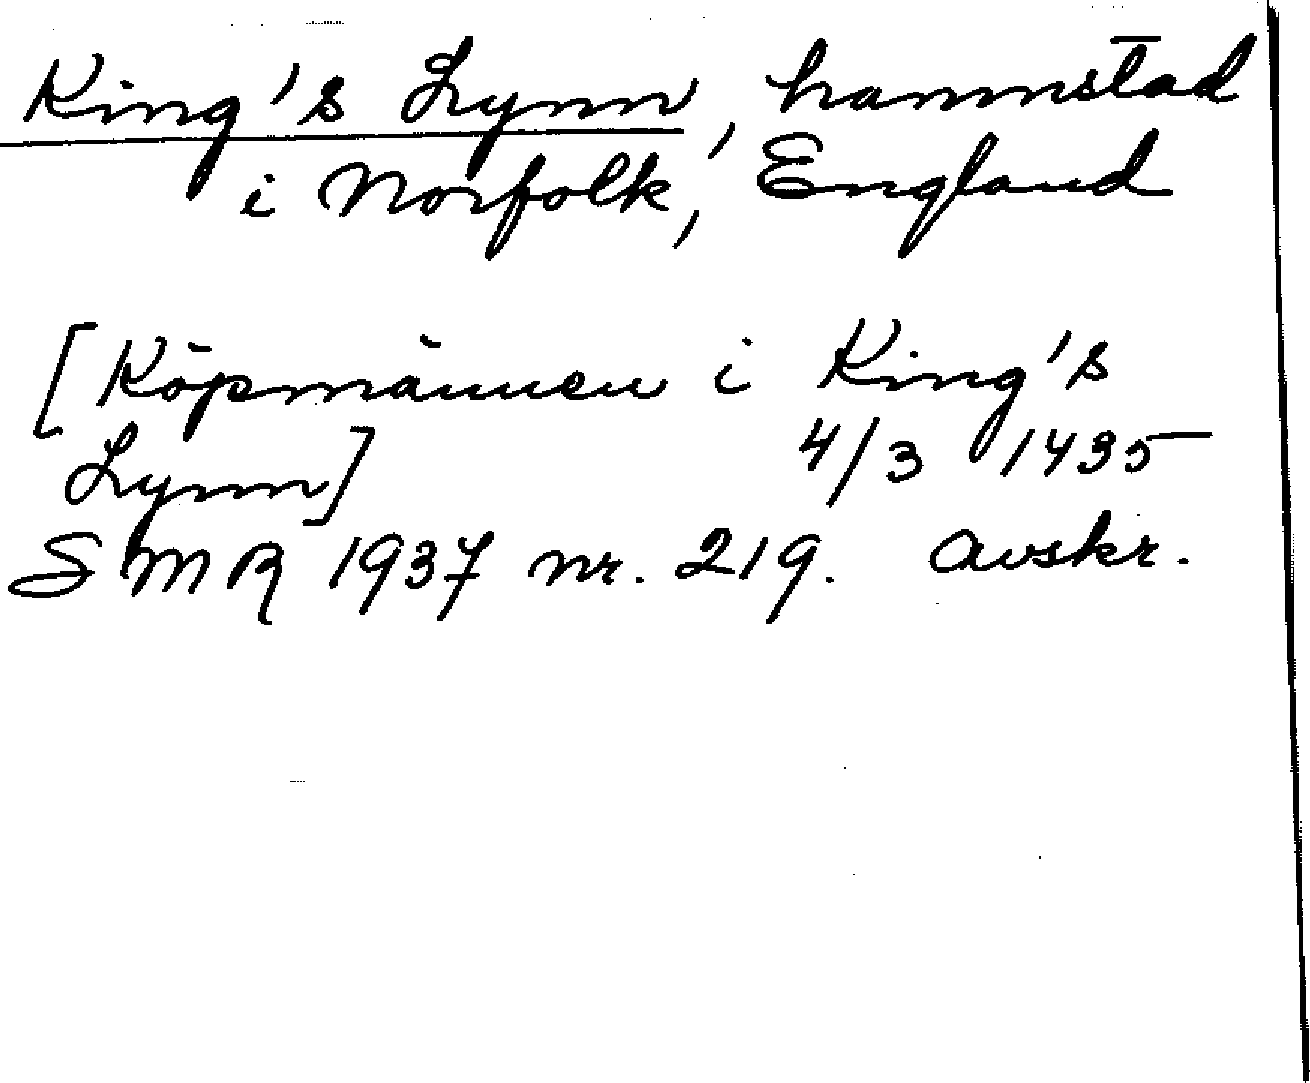 King's Lynn, hamnstad
i Norfolk, England
[Köpmännen i King's
Lynn] 4/3 1435
SMR 1937 nr. 219. avskr.